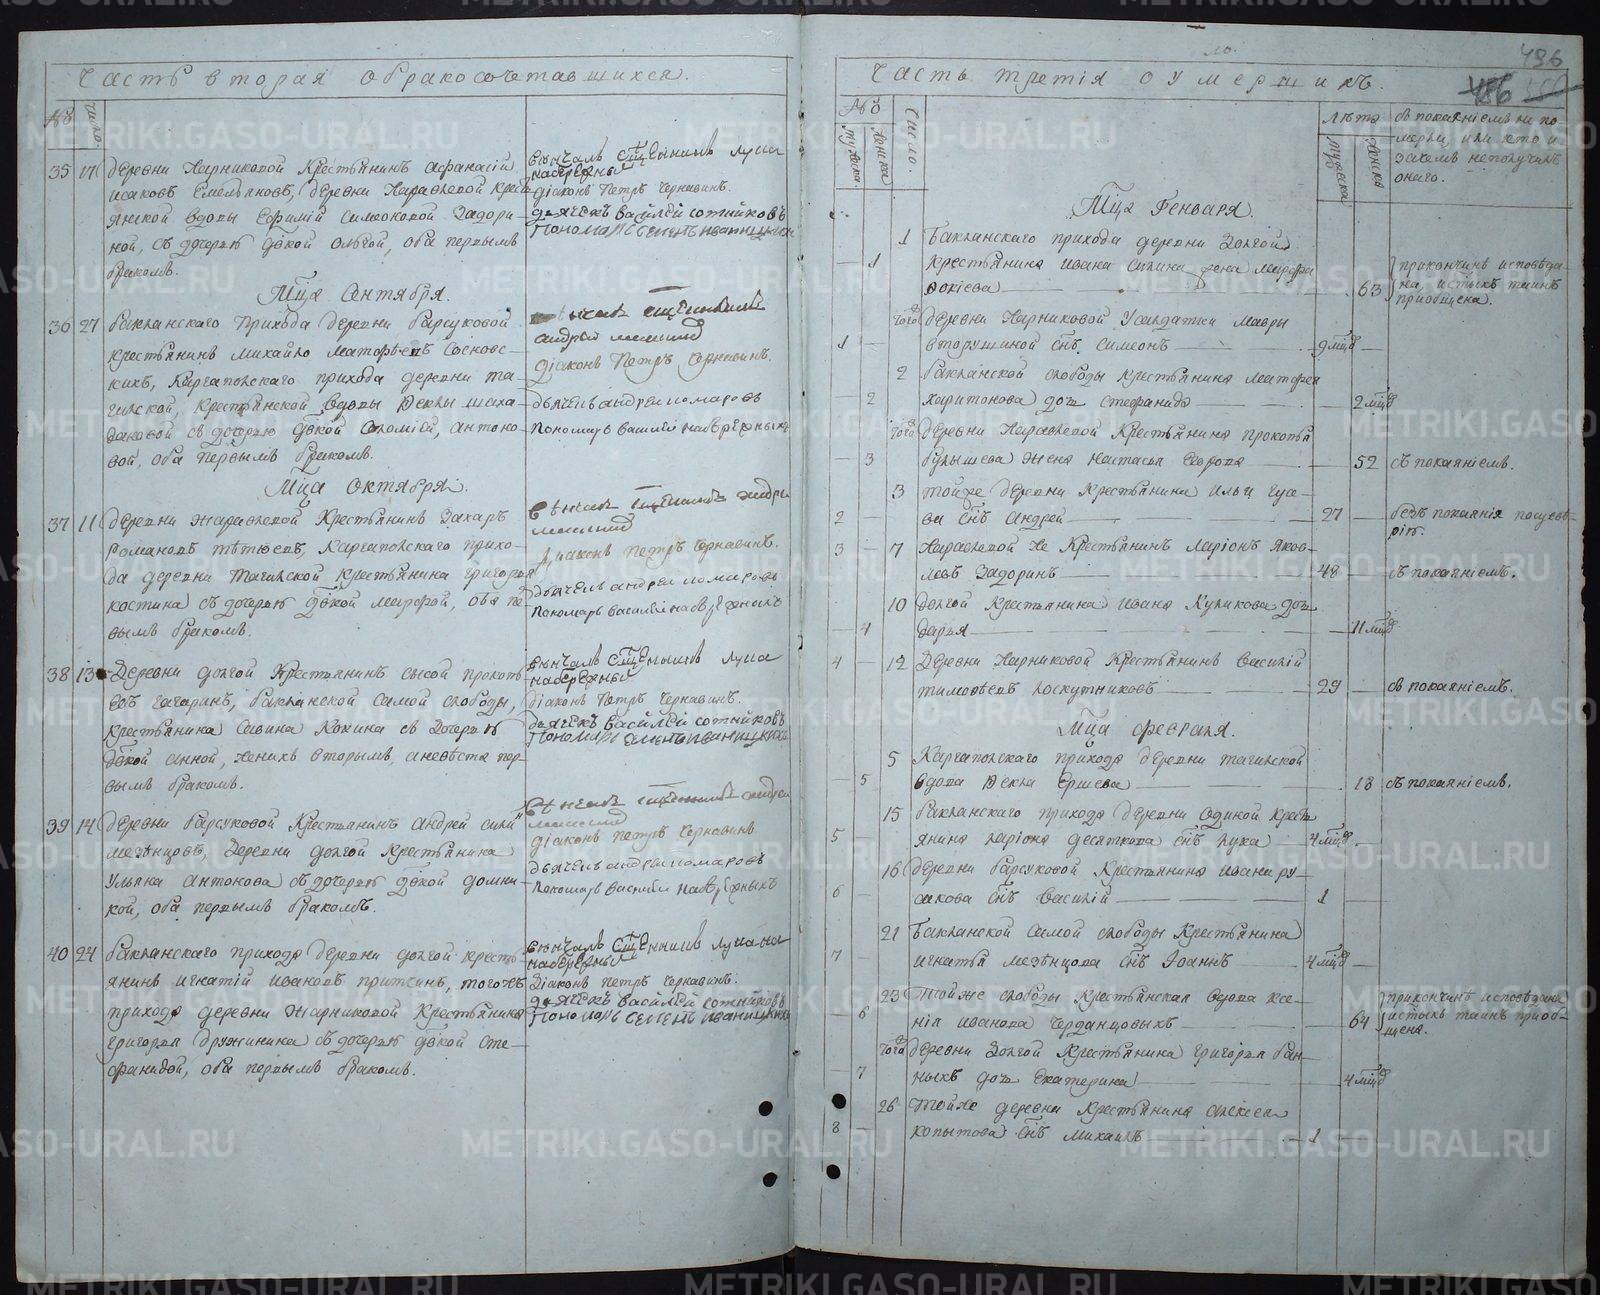 Часть вторая о бракосочетавшихся.
№ Число
35 17 деревни Жарниковой Крестьянинъ Афанасій
Исаковъ Емельяновъ, деревни Жаравлевой Крестьянской
вдовы Ефиміи Симеоновой Задориной,
съ дочерью дѣвкой Ольгой, оба первымъ
бракомъ.
Венчалъ Сщенникъ Лука
Набережный
діаконъ Петръ Чернавинъ.
дьячекъ Василей Сотниковъ
Пономарь Семенъ Иваницкихъ
Мца Сентября.
36 27 бакланскаго прихода деревни барсуковой
крестьянинъ Михайло Матфѣевъ Сосновскихъ,
Каргапольскаго прихода деревни тагильской,
крестьянской вдовы Ѳеклы
съ дочерью дѣвкой Соломіей, Антоновой,
оба первымъ бракомъ.
Андрей
діаконъ Петръ Чернавинъ.
дьячекъ Андрей Комаровъ
Пономарь Василей Набережныхъ
Мца Октября.
37 11 деревни Жаравлевой Крестьянинъ Захаръ
Романовъ, Каргапольскаго прихода
деревни тагильской крестьянина Григорья
Костина съ дочерью дѣвкой Марфой, оба первымъ
бракомъ.
Діаконъ Петръ Чернавинъ.
дьячекъ Андрей Комаровъ
Пономарь Василей Набережныхъ
38 13 Деревни долгой Крестьянинъ Сысой Прокопьевъ
Гагаринъ, баклинской самой слободы,
крестьянина Савина Кокина съ дочерью
дѣвкой Анной, женихъ вторымъ, а невѣста первымъ
бракомъ.
Венчалъ Сщенникъ Лука
Набережный
діаконъ Петръ Чернавинъ.
дьячекъ Василей Сотниковъ
Пономарь Семенъ Иваницкихъ
39 14 деревни барсуковой Крестьянинъ Андрей
Мезенцовъ, Деревни долгой Крестьянина
Ульяна Антонова съ дочерью дѣвкой Домникой,
оба первымъ бракомъ.
діаконъ Петръ Чернавинъ
дьячекъ Андрей Комаровъ
Пономарь Василей Набережныхъ
40 24 баклинскаго прихода деревни долгой крестьянинъ
Игнатій Ивановъ, тогожъ
прихода деревни Жарниковой Крестьянина
Григорья Дружинина съ дочерью дѣвкой Стефанидой,
оба первымъ бракомъ.
Венчалъ Сщенникъ Лука
Набережный
Діаконъ Петръ Чернавинъ.
дьячекъ Василей Сотниковъ
Пономарь Семенъ Иваницкихъ
496
486
Часть третія о умершихъ.
№ Число. Лѣта
мужеска женска мужеска женска
съ покаяніемъ ли померли, или кто и зачемъ неполучилъ онаго.
Мца Генваря.
1 Баклинскаго прихода деревни Долгой
— 1 крестьянина Ивана жена Марфа
63 прикончинѣ исповѣдана, и стыхъ таинъ приобщена.
того деревни Жарниковой Усалдатки Мавры
1 — Вторушиной снъ Симеонъ 9 мцъ
2 баклинской слободы крестьянина Матфея
— 2 Харитонова дочь Стефанида 2 мцъ
того деревни Жаравлевой Крестьянина Прокопья
— 3 булышева жена Настасья 52 съ покаяніемъ.
3 тойже деревни Крестьянина Ильи Гусева
2 — снъ Андрей 27 безъ покаянія
3 — 7 Жаравлевой же Крестьянинъ Ларіонъ Яковлевъ
Задоринъ 48 съ покаяніемъ.
10 долгой Крестьянина Ивана Куликова дочь
— 4 дарья 11 мцъ
4 — 12 Деревни Жарниковой Крестьянинъ Василій
Тимоѳеевъ Лоскутниковъ 29 съ покаяніемъ.
Мца февраля.
5 Каргапольскаго прихода деревни тагильской
— 5 вдова Ѳекла Ершева 18 съ покаяніемъ.
15 баклинскаго прихода деревни Одиной крестьянина
5 — Ларіона Десяткова снъ Лука 4 мцъ
16 деревни барсуковой Крестьянина Ивана
6 — снъ Василій 1
21 Баклинской самой слободы Крестьянина
7 — Игнатья Мезенцова снъ Іоаннъ 4 мцъ
23 Тойже слободы крестьянская вдова Ксенія
— 6 Иванова Черданцовыхъ 64 прикончинѣ исповѣдана и стыхъ таинъ приобщена.
того деревни Долгой Крестьянина Григорья
— 7 дочь Екатерина 4 мцъ
26 Тойже деревни крестьянина Алексея
8 — Копытова снъ Михаилъ 1
METRIKI.GASO-URAL.RU